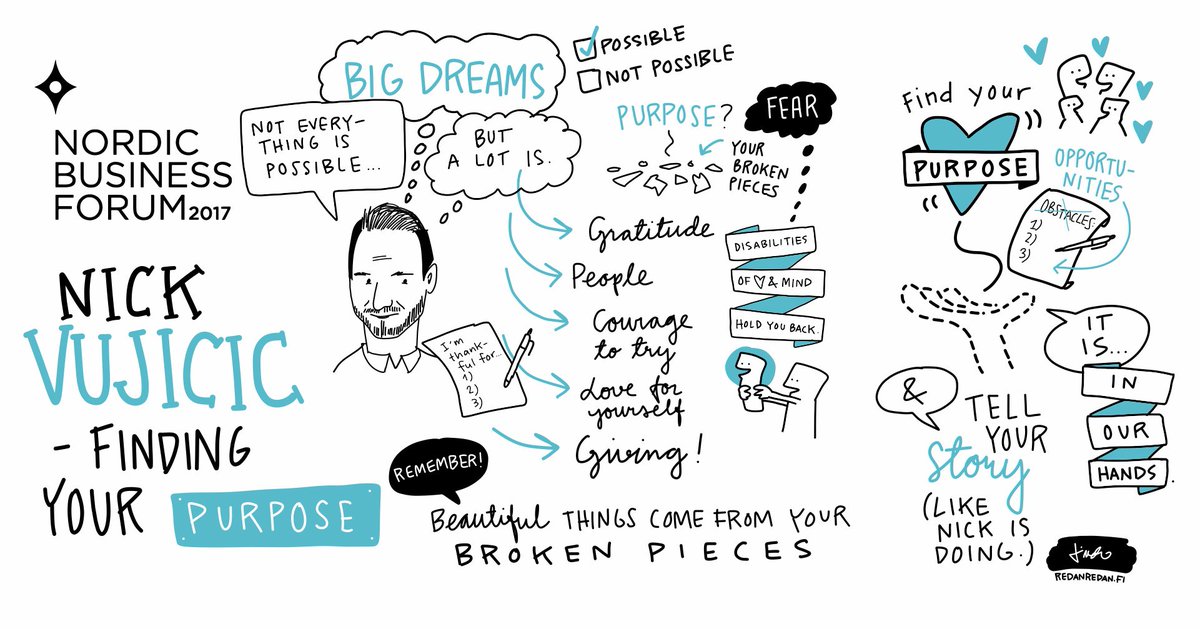 NORDIC
BUSINESS
FORUM 2017
NICK
VUJICIC
- FINDING
YOUR PURPOSE
BIG DREAMS
POSSIBLE
NOT POSSIBLE
NOT EVERY-
THING IS
POSSIBLE...
BUT
A LOT IS.
I'm
thank-
ful for...
1)
2)
3)
Gratitude
People
Courage
to try
Love for
yourself
Giving!
PURPOSE?
YOUR
BROKEN
PIECES
FEAR
DISABILITIES
OF ♡ & MIND
HOLD YOU BACK.
REMEMBER!
Beautiful THINGS COME FROM YOUR
BROKEN PIECES
Find your
PURPOSE
OPPORTU-
NITIES
OBSTACLES:
1)
2)
3)
IT
IS...
IN
OUR
HANDS.
&
TELL
YOUR
Story
(LIKE
NICK IS
DOING.)
REDANREDAN.FI